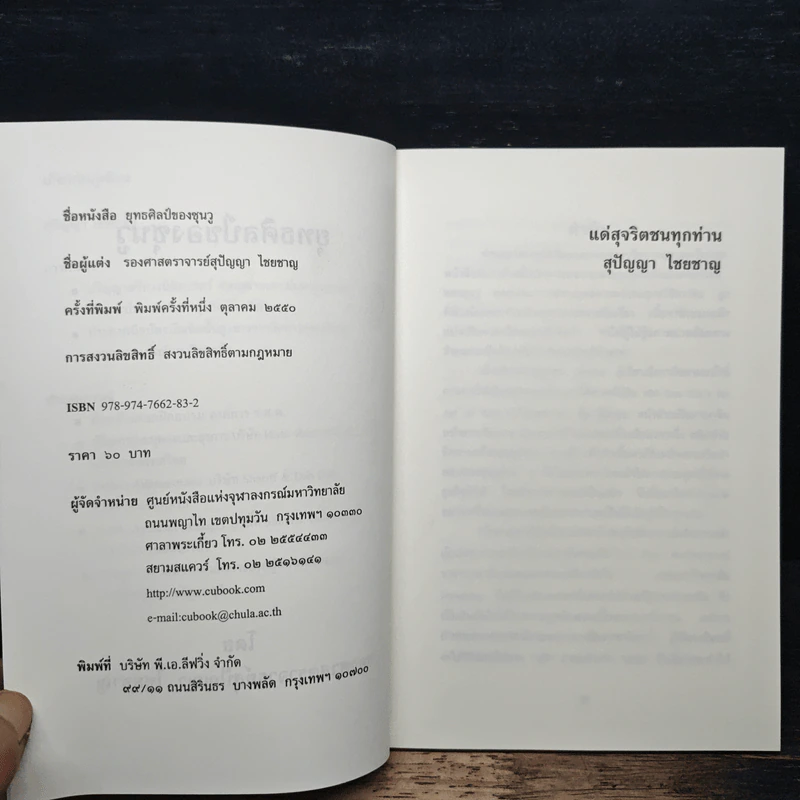 ชื่อหนังสือ ยุทธศิลป์ของซุนวู
ชื่อผู้แต่ง รองศาสตราจารย์สุปัญญา ไชยชาญ
ครั้งที่พิมพ์ พิมพ์ครั้งที่หนึ่ง ตุลาคม ๒๕๕๐
การสงวนลิขสิทธิ์ สงวนลิขสิทธิ์ตามกฎหมาย
ISBN 978-974-7662-83-2
ราคา ๖๐ บาท
ผู้จัดจำหน่าย ศูนย์หนังสือแห่งจุฬาลงกรณ์มหาวิทยาลัย
ถนนพญาไท เขตปทุมวัน กรุงเทพฯ ๑๐๓๓๐
ศาลาพระเกี้ยว โทร. ๐๒ ๒๕๕๔๔๓๓
สยามสแควร์ โทร. ๐๒ ๒๕๑๖๑๔๑
http://www.cubook.com
e-mail:cubook@chula.ac.th
พิมพ์ที่ บริษัท พี.เอ.ลีฟวิ่ง จำกัด
๙๙/๑๑ ถนนสิรินธร บางพลัด กรุงเทพฯ ๑๐๗๐๐
แด่สุจริตชนทุกท่าน
สุปัญญา ไชยชาญ